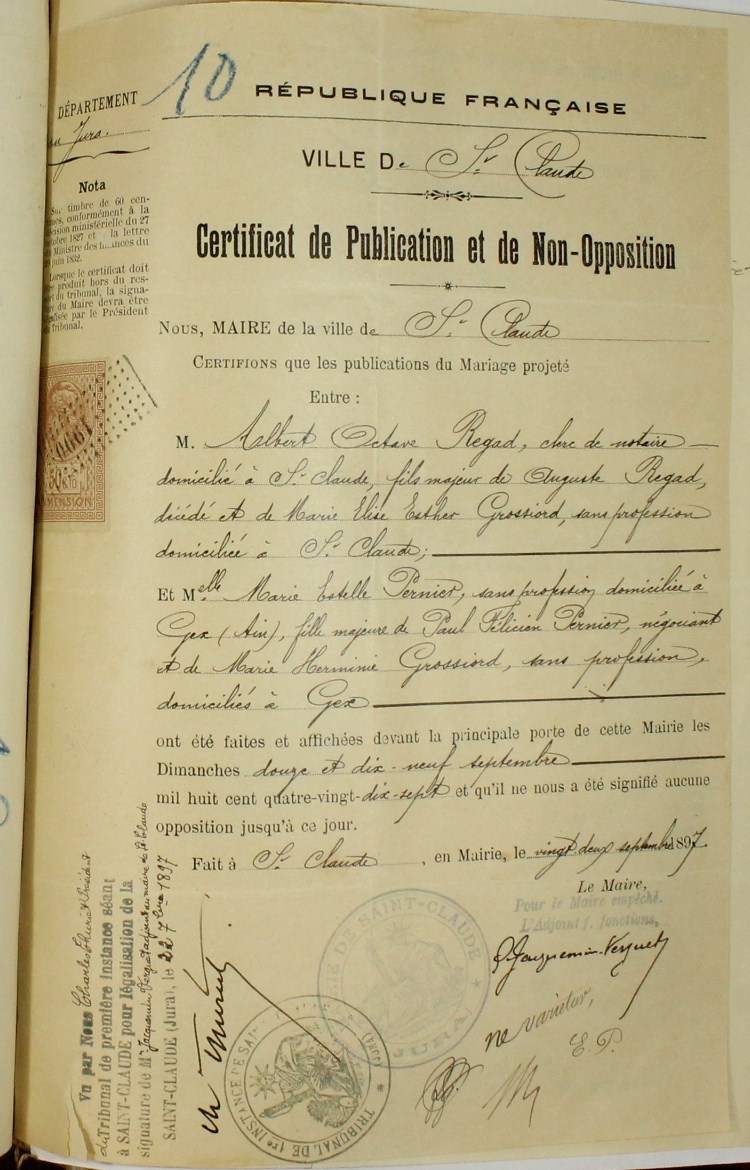 10
DÉPARTEMENT
Jura.
Nota
timbre de 60 cen-
conformément à la
ministérielle du 27
1827 et la lettre
Ministre des du
juin 1832.
Lorsque le certificat doit
produit hors du res-
du tribunal, la signa-
du Maire devra être
par le Président
Tribunal.
RÉPUBLIQUE FRANÇAISE
VILLE De St Claude
Certificat de Publication et de Non-Opposition
Nous, MAIRE de la ville de St Claude
CERTIFIONS que les publications du Mariage projeté
Entre :
M. Albert Octave Regad, clerc de notaire
domicilié à St Claude, fils majeur de Auguste Regad,
décédé et de Marie Elise Esther Grossiord, sans profession
domiciliée à St Claude;
Et Melle Marie Estelle Pernier, sans profession domiciliée à
Gex (Ain), fille majeure de Paul Félicien Pernier, négociant
et de Marie Herminie Grossiord, sans profession,
domiciliés à Gex
ont été faites et affichées devant la principale porte de cette Mairie les
Dimanches douze et dix-neuf septembre
mil huit cent quatre-vingt-dix-sept et qu'il ne nous a été signifié aucune
opposition jusqu'à ce jour.
Fait à St Claude, en Mairie, le vingt deux septembre 1897
Le Maire,
Pour le Maire empêché.
L'Adjoint f. fonctions,
Jacquemin-Verguet
ne varietur,
E. P.
MAIRIE DE SAINT-CLAUDE
JURA
TRIBUNAL DE 1re INSTANCE DE SAINT
Vu par Nous Charles Président
du Tribunal de première instance séant
à SAINT-CLAUDE pour légalisation de la
signature de Mr Jacquemin Verguet adjoint au maire de St Claude
SAINT-CLAUDE (Jura), le 22 7bre 1897